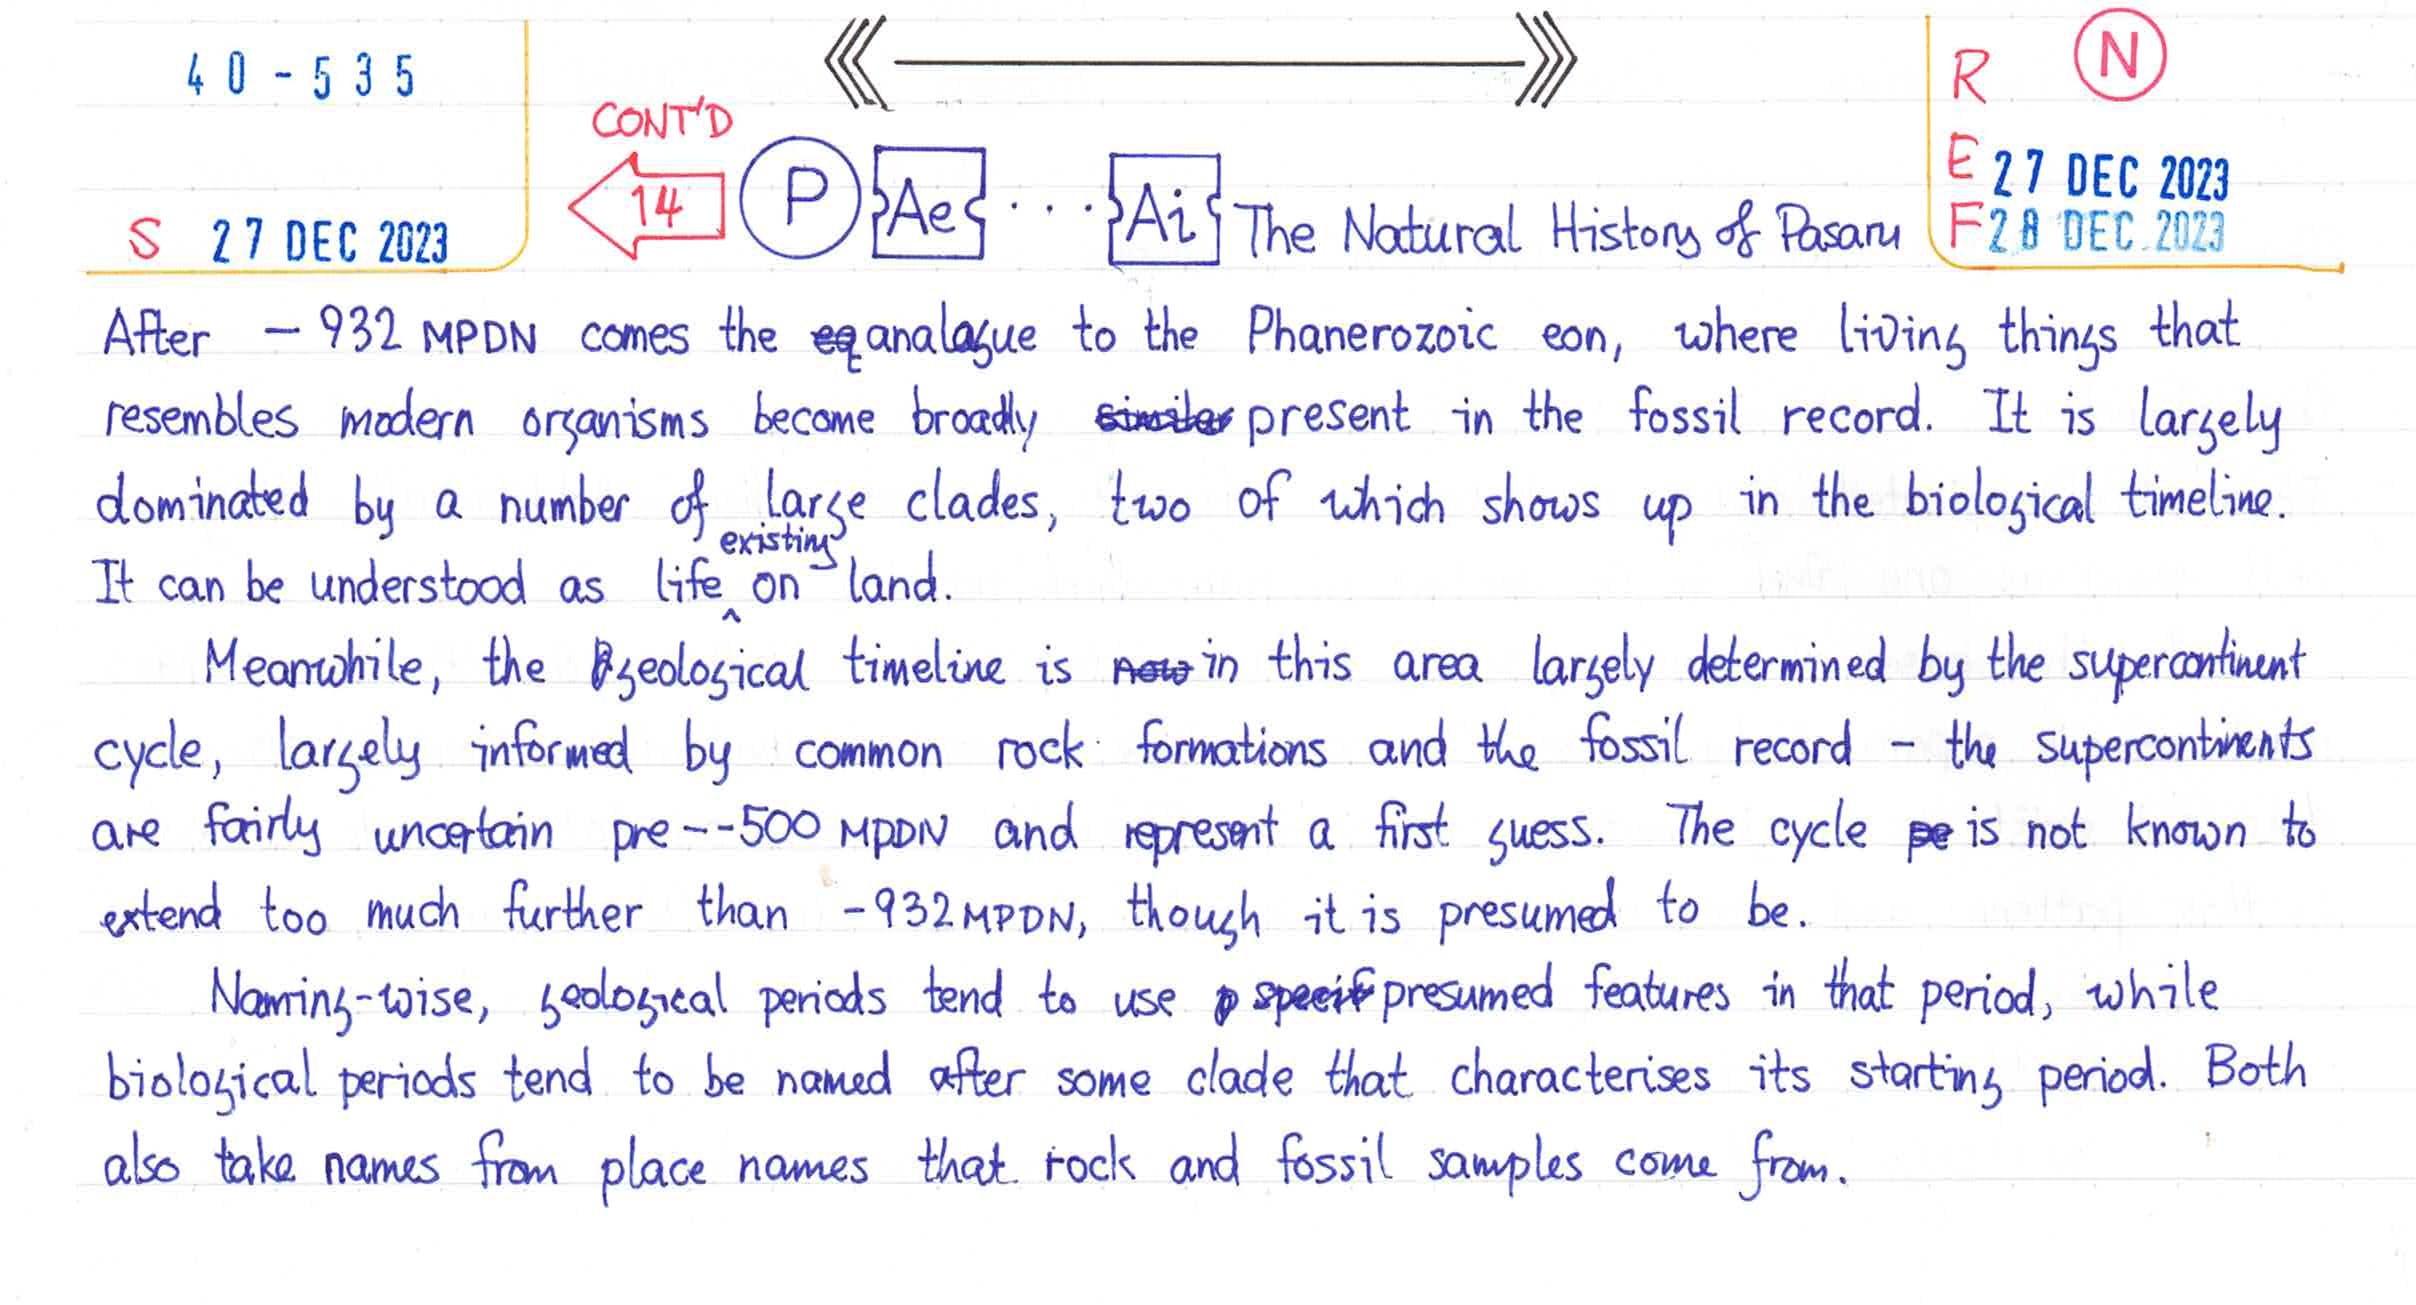 40-535
S 27 DEC 2023
CONT'D
14
P Ae ... Ai The Natural History of Pasaru
R N
E 27 DEC 2023
F 28 DEC 2023
After -932 MPDN comes the eq analogue to the Phanerozoic eon, where living things that
resembles modern organisms become broadly similar present in the fossil record. It is largely
dominated by a number of large clades, two of which shows up in the biological timeline.
It can be understood as life existing on land.
Meanwhile, the geological timeline is now in this area largely determined by the supercontinent
cycle, largely informed by common rock formations and the fossil record - the supercontinents
are fairly uncertain pre--500 MPDN and represent a first guess. The cycle pe is not known to
extend too much further than -932 MPDN, though it is presumed to be.
Naming-wise, geological periods tend to use p specif presumed features in that period, while
biological periods tend to be named after some clade that characterises its starting period. Both
also take names from place names that rock and fossil samples come from.